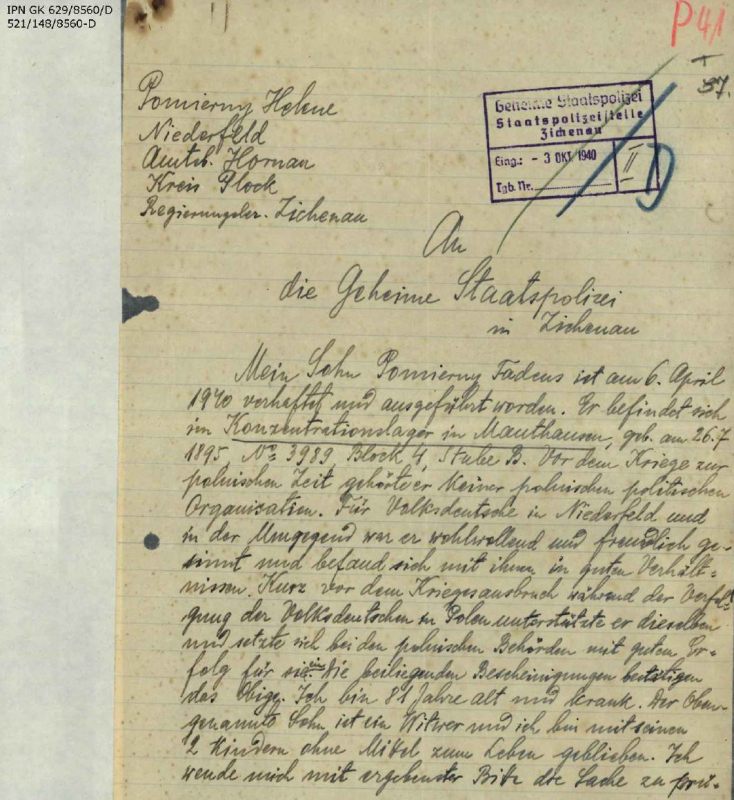 IPN GK 629/8560/D
521/148/8560-D
P 41
37.
Pomierny Helene
Niederfeld
Amtsb. Hornau
Kreis Plock
Regierungsbez. Zichenau
Geheime Staatspolizei
Staatspolizeistelle
Zichenau
Eing.: - 3 OKT 1940
Tgb. Nr.
II
D
An
die Geheime Staatspolizei
in Zichenau
Mein Sohn Pomierny Tadeus ist am 6. April
1940 verhaftet und ausgeführt worden. Er befindet sich
im Konzentrationslager in Mauthausen, geb. am 26.7
1895, No 3989, Block 4, Stube B. Vor dem Kriege zur
polnischen Zeit gehörte er keiner polnischen politischen
Organisation. Für Volksdeutsche in Niederfeld und
in der Umgegend war er wohlwollend und freundlich ge-
sinnt und befand sich mit ihnen in guten Verhält-
nissen. Kurz vor dem Kriegsausbruch während der Verfol-
gung der Volksdeutschen in Polen unterstützte er dieselben
und setzte sich bei den polnischen Behörden mit guten Er-
folg für sie ein. Die beiliegenden Bescheinigungen bestätigen
das Obige. Ich bin 81 Jahre alt und krank. Der Oben-
genannte Sohn ist ein Witwer und ich bin mit seinen
2 Kindern ohne Mittel zum Leben geblieben. Ich
wende mich mit ergebenster Bitte die Sache zu prü-